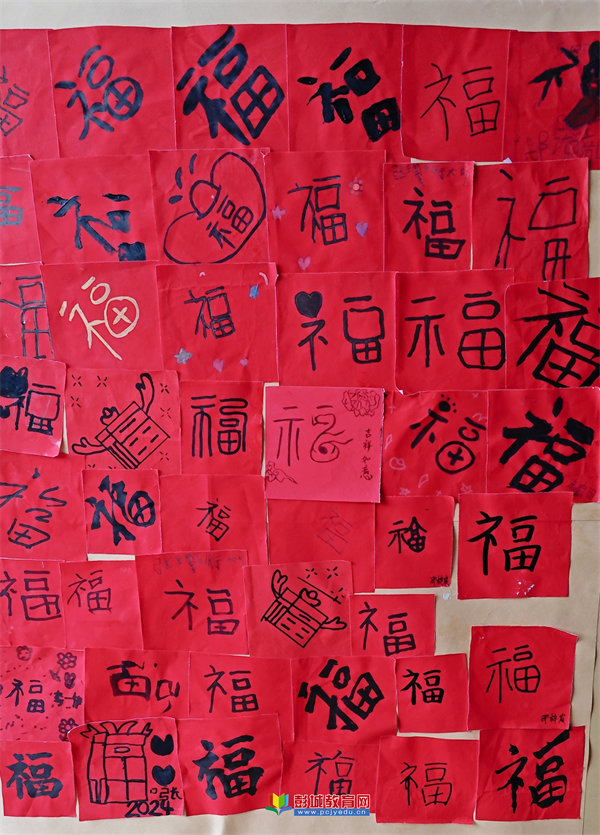 福 福 福 福 福
福 福 福 福 福 福
福 福 福 福 福 福
福 福 福 吉祥如意 福 福
福 福 福 福 福
福 福 福 福
福 福 福 福 福
福 2024 福 福 福 福
彭城教育网
www.pcjyedu.cn